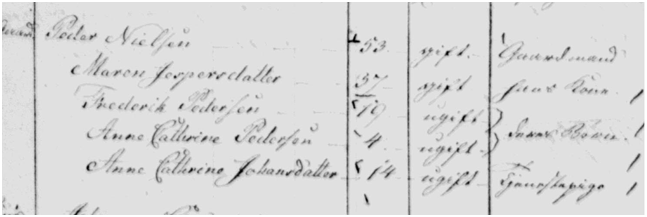 Peder Nielsen 53 gift. Gaardmand
Maren Jespersdatter 37 gift hans Kone
Frederik Pedersen 19 ugift
Anne Cathrine Pedersen 4 ugift } deres Børn
Anne Cathrine Johansdatter 14 ugift Tjenestepige